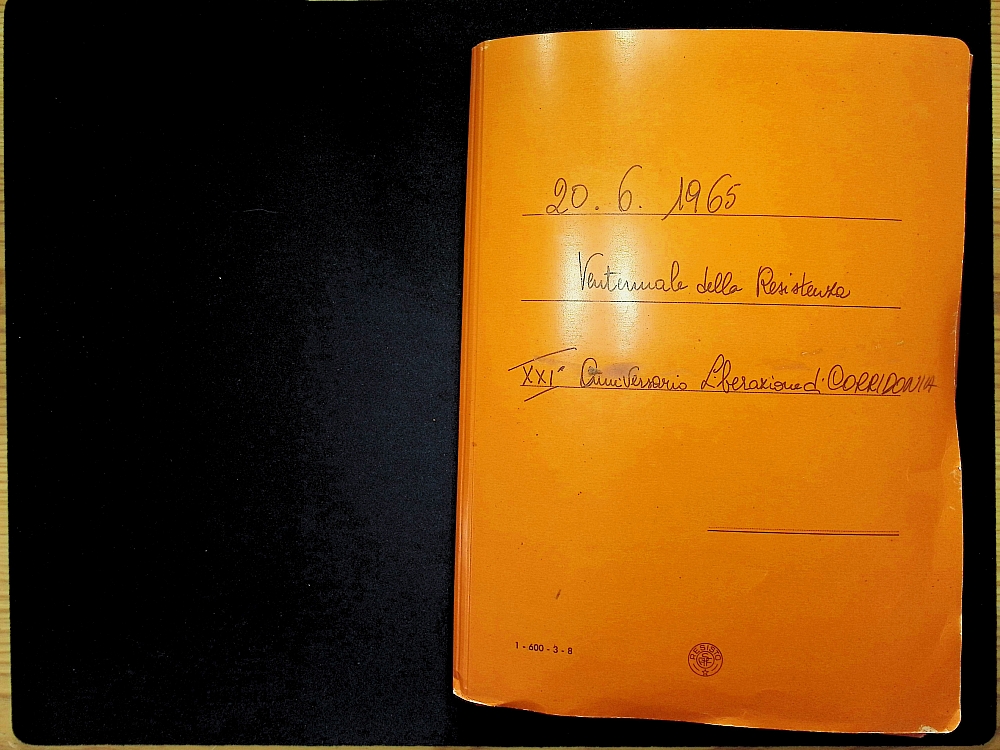 20. 6. 1965
Ventennale della Resistenza
XXI° Anniversario Liberazione di CORRIDONIA
1 - 600 - 3 - 8
RESISTO